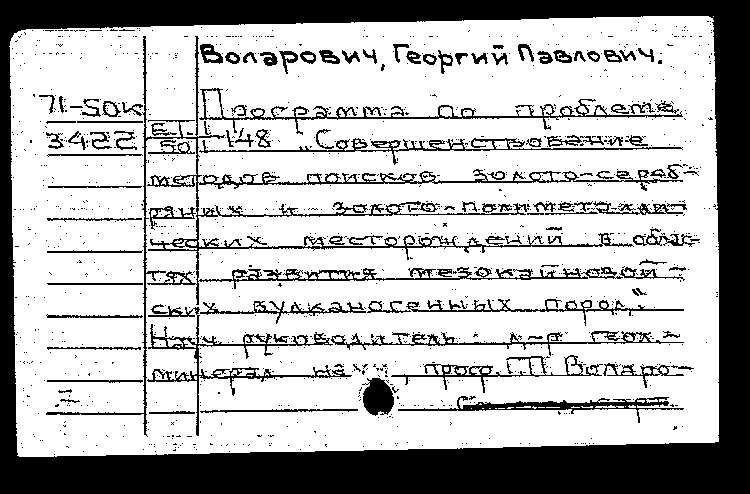 Воларович, Георгий Павлович.
71-50к Программа по проблеме
3422 Е.Т. 50 1-148 „Совершенствование
методов поисков золото-сереб-
ряных и золото-полиметалли-
ческих месторождений в облас-
тях развития мезокайнозой-
ских вулканогенных пород".
Науч руководитель: д-р геол.-
минерал наук, проф. Г.П. Воларо-